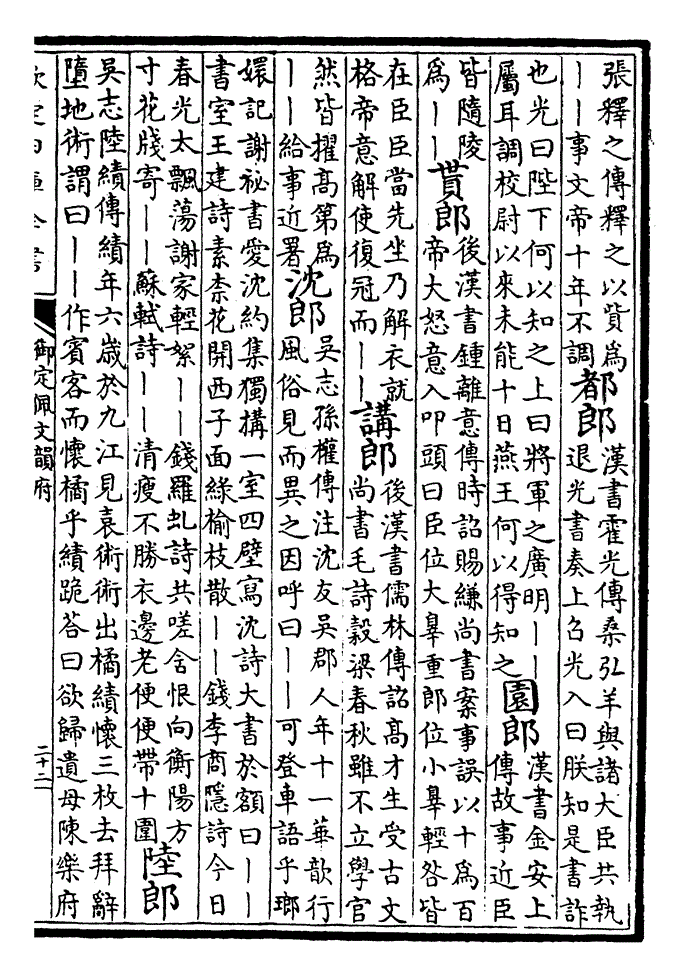 張釋之傳釋之以貲為
丨丨事文帝十年不調
都郎
漢書霍光傳桑弘羊與諸大臣共執
退光書奏上召光入曰朕知是書詐
也光曰陛下何以知之上曰將軍之廣明丨丨
屬耳調校尉以來未能十日燕王何以得知之
園郎
漢書金安上
傳故事近臣
皆隨陵
為丨丨
貰郎
後漢書鍾離意傳時詔賜縑尚書案事誤以十為百
帝大怒意入叩頭曰臣位大辠重郎位小辠輕咎皆
在臣臣當先坐乃解衣就
格帝意解使復冠而丨丨
講郎
後漢書儒林傳詔高才生受古文
尚書毛詩穀梁春秋雖不立學官
然皆擢高第為
丨丨給事近署
沈郎
吳志孫權傳注沈友吳郡人年十一華歆行
風俗見而異之因呼曰丨丨可登車語乎瑯
嬛記謝祕書愛沈約集獨搆一室四壁寫沈詩大書於額曰丨丨
書室王建詩素柰花開西子面綠榆枝散丨丨錢李商隱詩今日
春光太飄蕩謝家輕絮丨丨錢羅虬詩共嗟含恨向衡陽方
寸花牋寄丨丨蘇軾詩丨丨清瘦不勝衣邊老便便帶十圍
陸郎
吳志陸績傳績年六歲於九江見袁術術出橘績懷三枚去拜辭
墮地術謂曰丨丨作賓客而懷橘乎績跪荅曰欲歸遺母陳樂府
欽定四庫全書
御定佩文韻府
二十二